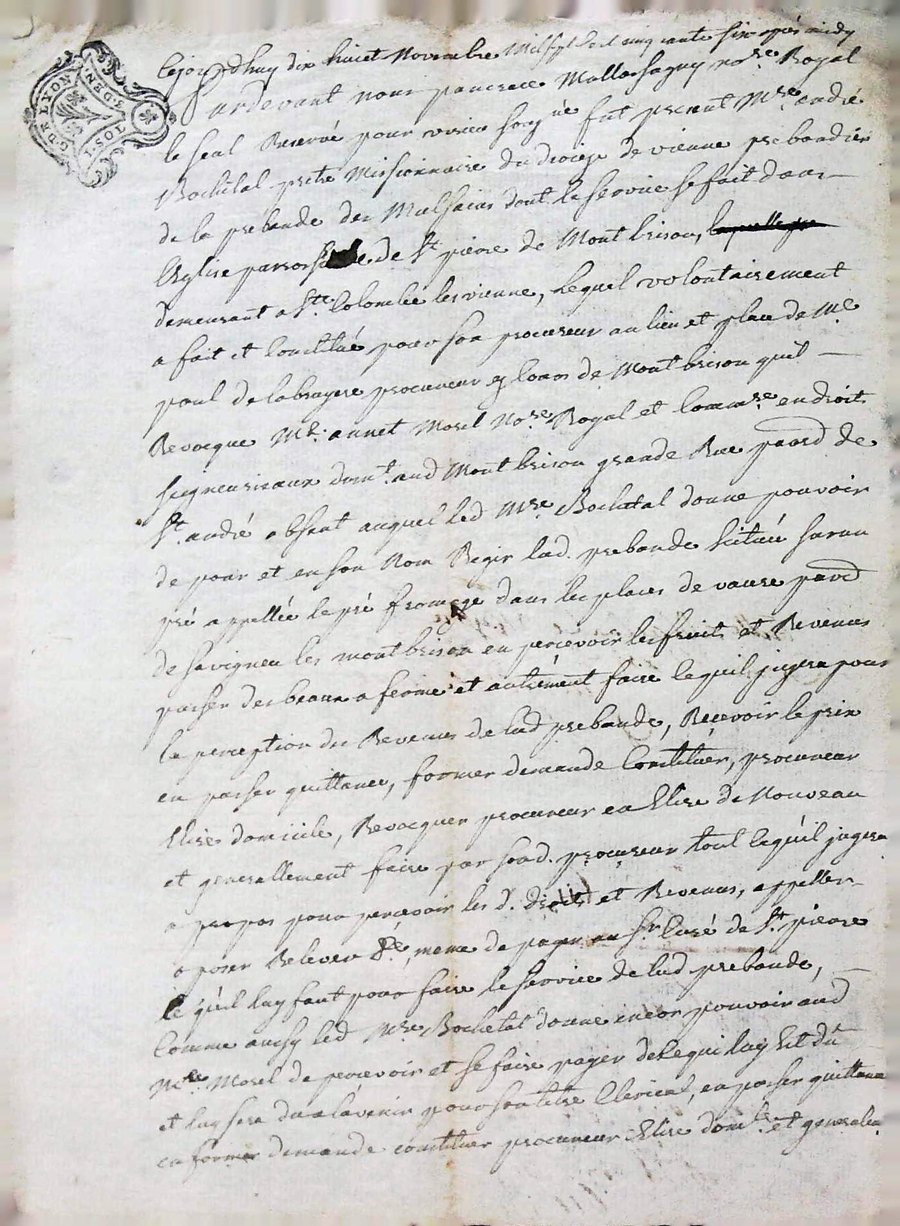 G. DE LYON
GEN.
1. SOL
Cejourd'huy dix huict Novembre Mil sept cent cinquante six après midy
Pardevant nous pancrace Mallassagny no.re Royal
le seul Reservé pour vienne soubsigné fut present M.re andré
Bochetal pretre Missionnaire du diocese de vienne prebandier
de la prebande des Malsains dont le service se fait dans
l'Eglise parroissialle de S.t pierre de Montbrison, laquelle
demeurant a S.te Colombe les vienne, lequel volontairement
a fait et Constitué pour son procureur au lieu et place de M.e
paul de labruyere procureur es Cours de Montbrison qu'il
Revocque M.e annet Morel No.re Royal et Comm.re en droits
seigneuriaux dem.t aud Montbrison grande Rue parr.d de
S.t andré absent auquel led M.re Bochetal donne pouvoir
de pour et en son Nom Regir lad. prebande scituée sur un
pré appellée le pré fromage dans les places de vaure parr.d
de savigneu les montbrison en percevoir les fruits et Revenus
passer des beaux a ferme et autrement faire ce quil jugera pour
la perception des Revenus de lad prebande, Recevoir le prix
en passer quittance, former demande Constituer, procureur
Elire domicile, Revocquer procureur en Elire de Nouveau
et generallement faire par sond. procureur tout ce qu'il jugera
a propos pour percevoir les d. droits et Revenus, appeller
oposer Relever &c, meme de payer au S.r Curé de S.t pierre
ce qu'il luy faut pour faire le service de lad prebande,
Comme aussy led M.re Bochetal donne encor pouvoir aud
M.re Morel de percevoir et se faire payer de ce qui luy Est dû
et luy sera du a lavenir pour son titre Clerical, en passer quittance
en former demande constituer procureur Elire dom.le et generalem